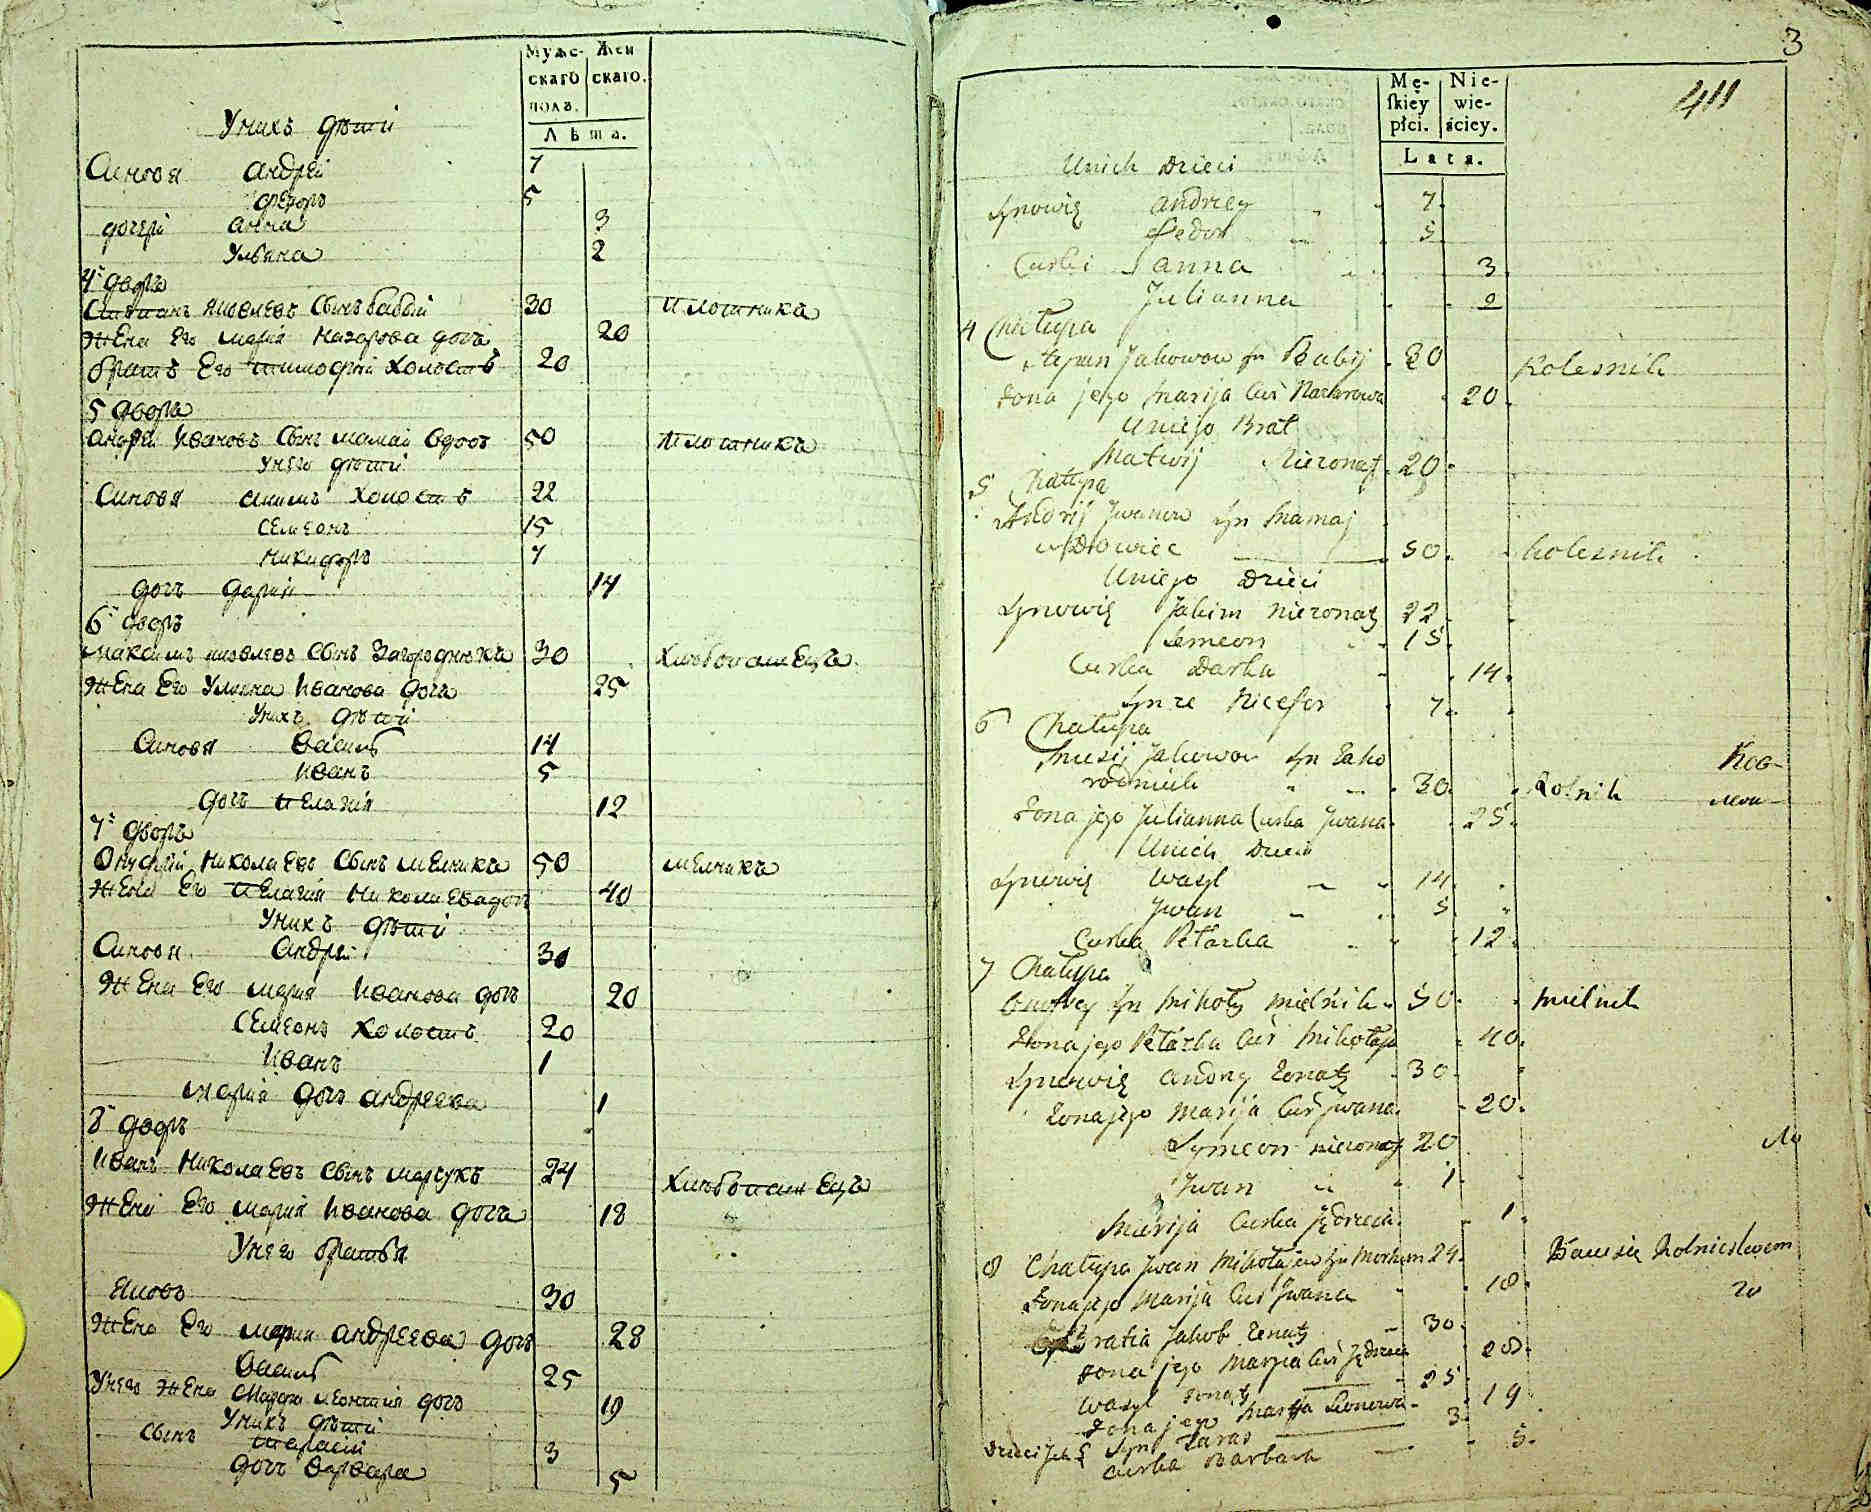 Мужс- Жен
скаго скаго.
полъ.
Лѣта.
Унихъ дѣти
Синовя андрей 7
федоръ 5
дочери анна 3
Уляна 2
4й дворъ
Степанъ яковлевъ Сынъ бабый 30 плотникъ
Жена Его мария назарова дочь 20
братъ Его тимофий холостъ 20
5 дворъ
андрей Ивановъ Сынъ мамай вдовъ 50 плотникъ
унего дѣти
Синовя акимъ холостъ 22
семеонъ 15
никифоръ 7
дочъ дария 14
6й дворъ
максимъ яковлевъ Сынъ Загороднюкъ 30 хлѣбопашецъ
Жена Его Уляна Иванова дочь 25
Унихъ дѣти
Синовя василь 14
Иванъ 5
дочъ пелагия 12
7й дворъ
Онуфрий николаевъ Сынъ мелникъ 50 мелникъ
Жена Его пелагия николаева доч 40
Унихъ дѣти
Синовя андрей 30
Жена Его мария Иванова дочъ 20
семеонъ холостъ 20
Иванъ 1
мария дочъ андреева 1
8й дворъ
Иванъ николаевъ Сынъ марчукъ 24 хлѣбопашецъ
Жена Его мария Иванова дочъ 18
Унего братья
яковъ 30
Жена Его мария андреева дочъ 28
василь 25
Унего жена марфа леонтия дочъ 19
Унихъ дѣти
Сынъ тарасий 3
дочъ варвара 5
3
411
Mę- Nie-
skiey wie-
płci. ściey.
Lata.
Unich Dzieci
Synowię andrzey 7
Fedor 5
Curki anna 3
Julianna 2
4 Chatupa
Stepan Jakowow syn Babij 30 Kolesnik
żona jego Marija Cur Nazarowa 20
Uniego Brat
Matwij nieżonaty 20
5 Chatupa
Andrij Jwanow syn Mamaj
wdowiec 50 kolesnik
Uniego Dzieci
Synowię Jakim nieżonaty 22
Semeon 15
Curka Darka 14
Syn że Nicefor 7
6 Chatupa
Jakowow syn Zaho
rodniuk 30 Rolnik
żona jego Julianna Curka Jwana 25
Unich Dzieci
Synowię Wasyl 14
Jwan 5
Curka Petazka 12
7 Chatupa
Onufrey syn Mikoty Mielnik 50 Mielnik
żona jego Petazka Cur Mikotaja 40
Synowię andrzy żonaty 30
żona jego Marija Cur Jwana 20
Symeon nieżonaty 20
Jwan 1
Marija Curka Jędrzeja 1
8 Chatupa Jwan Mikotajew syn 24 Bawsię Rolnictwem
żona jego Marija Cur Jwana 18
Bratia Jakob żonaty 30
żona jego Maryia Cur Jędrzeia 28
Wasyl żonaty 25
żona jego Marfa 19
Dzieci Ich Syn Taras 3
Curka Barbara 5